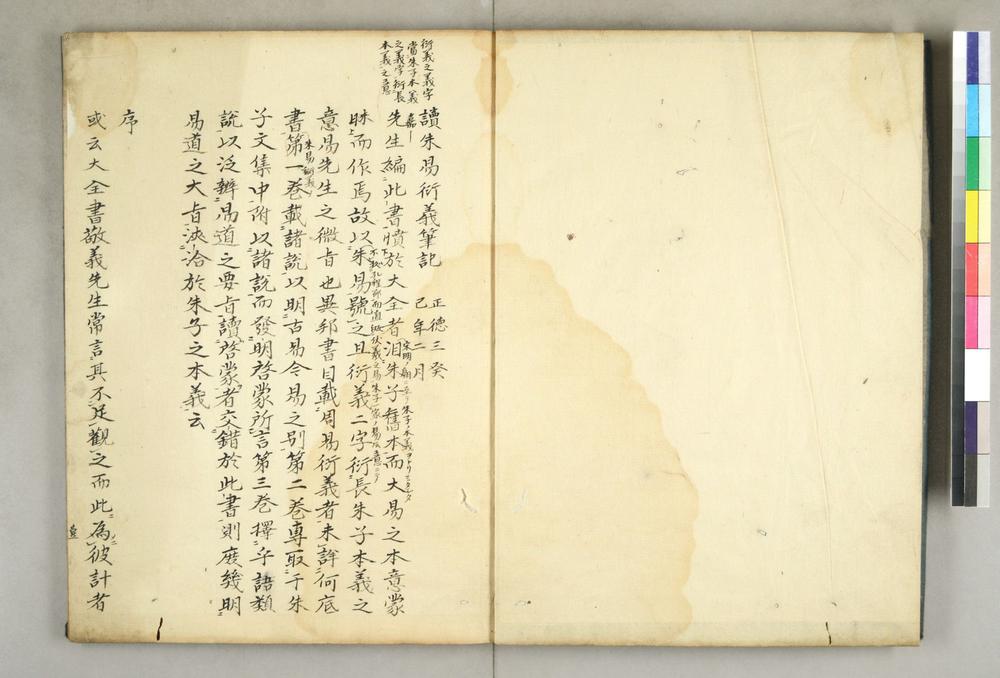 衍義之義字
當朱子本義
之義字衍長
本義之意
讀朱易衍義筆記 正德三癸
巳年二月
先生編此書憤於大全者汨朱子舊本而大易之本意蒙
昧而作焉故以朱易號之且衍義二字衍長朱子本義之
意易先生之微旨也異邦書目載周易衍義者未詳何底
書第一卷載諸說以明古易今易之別第二卷專取于朱
朱易衍義
子文集中附以諸說而發明啓蒙所言第三卷擇乎語類
說以泛辨易道之要旨讀啓蒙者交錯於此書則庶幾明
易道之大旨浹洽於朱子之本義云
序
或云大全書敬義先生常言其不足觀之而此為彼計者